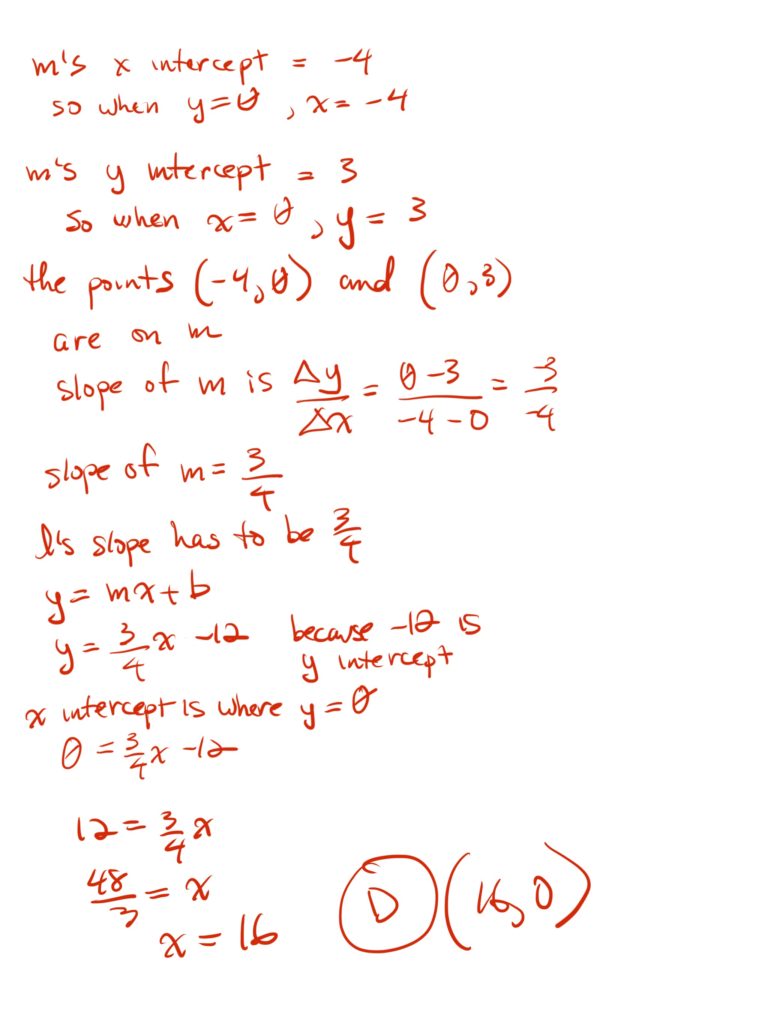 m's x intercept = -4
so when y=0, x= -4
m's y intercept = 3
so when x=0, y= 3
the points (-4,0) and (0,3)
are on m
slope of m is Δy/Δx = 0-3/-4-0 = -3/-4
slope of m= 3/4
l's slope has to be 3/4
y= mx+b
y= 3/4 x -12 because -12 is
y intercept
x intercept is where y=0
0 = 3/4 x -12
12= 3/4 x
48/3 = x
x= 16
D (16,0)